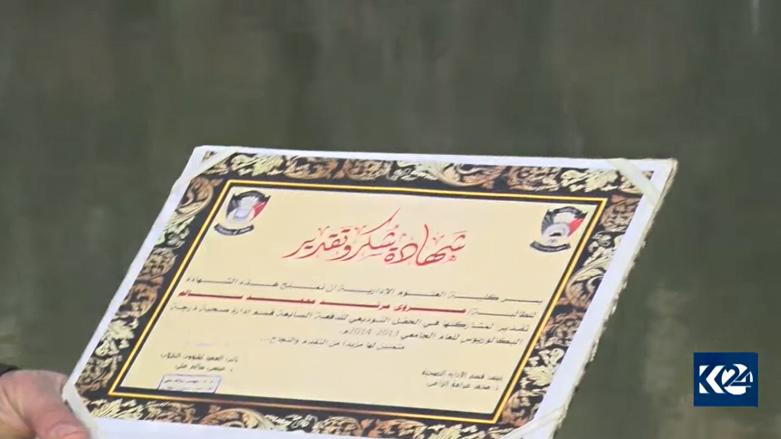 شهادة شكر وتقدير
يسر كلية العلوم الادارية ان تمنح هذه الشهادة
للطالبة/ مروى مرشد محمد سالم
تقدير لمشاركتها في الحفل التوديعي للدفعة السابعة قسم إدارة صحية درجة
البكالوريوس للعام الجامعي 2013-2014م.
متمنين لها مزيدا من التقدم والنجاح...
نائب العميد لشؤون الطلاب
رئيس قسم الإدارة الصحية
K24